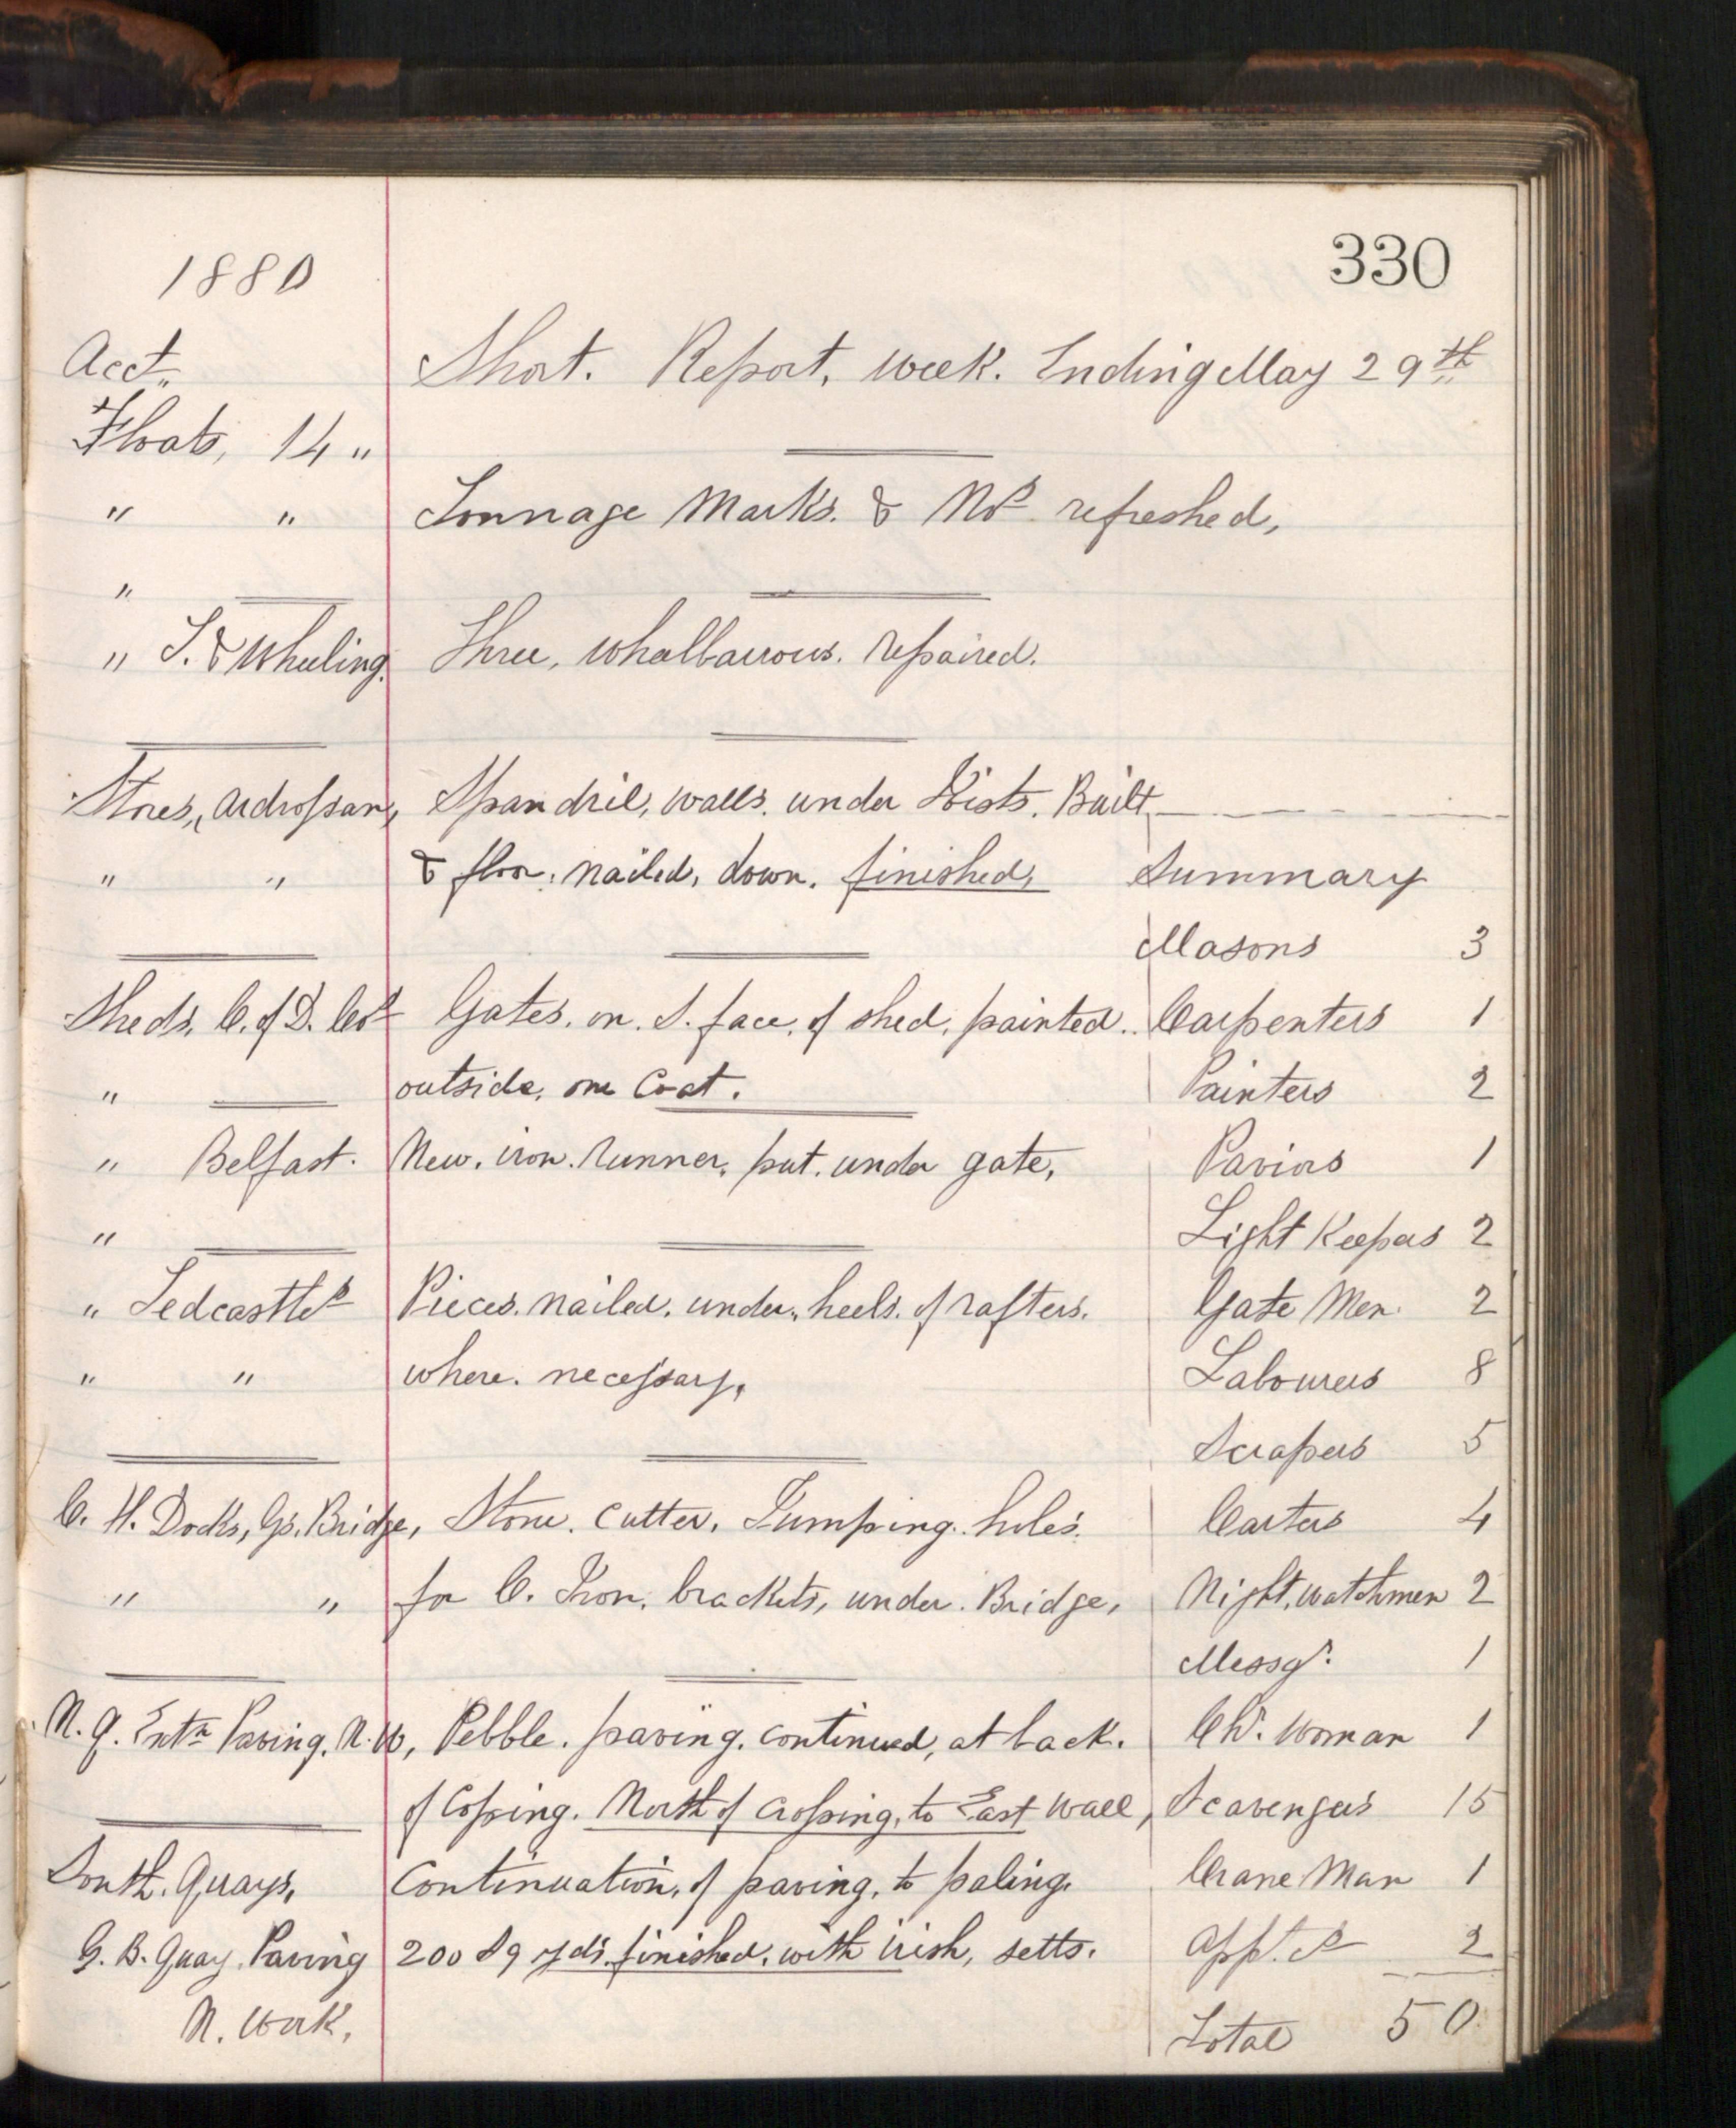 330
1880
Acct. Short. Report, week. Ending May 29th
Floats, 14 "
" " Tonnage Marks. & Nos. refreshed,
"
" T. & Wheeling. Three, whelbarrows. repaired.
Stores, Ardrossan, Spandril, walls. under Joists. Built
" " & floor. nailed, down. finished, Summary
Masons 3
Sheds, C. of D. Cos Gates. on. S. face. of shed, painted. Carpenters 1
" outside, one Coat. Painters 2
" Belfast. New. iron. Runner, put. under gate, Paviors 1
" Light Keepers 2
" Tedcastles Pieces. nailed. under, heels. of rafters. Gate Men 2
" " where. necessary, Labourers 8
Scrapers 5
C. H. Docks, Gs. Bridge, Stone. Cutter. Jumping. holes. Carters 4
" " for C. Iron, brackets, under. Bridge, Night, watchmen 2
Messgr. 1
N. Q. Extn Paving. N. W, Pebble. paving. continued, at back. Chr. Woman 1
of Coping. North of Crossing, to East Wall, Scavengers 15
South. Quays, Continuation, of paving, to paling. Crane Man 1
G. B. Quay. Paving 200 Sq yds. finished. with irish, setts. Appt.es 2
N. Work, Total 50